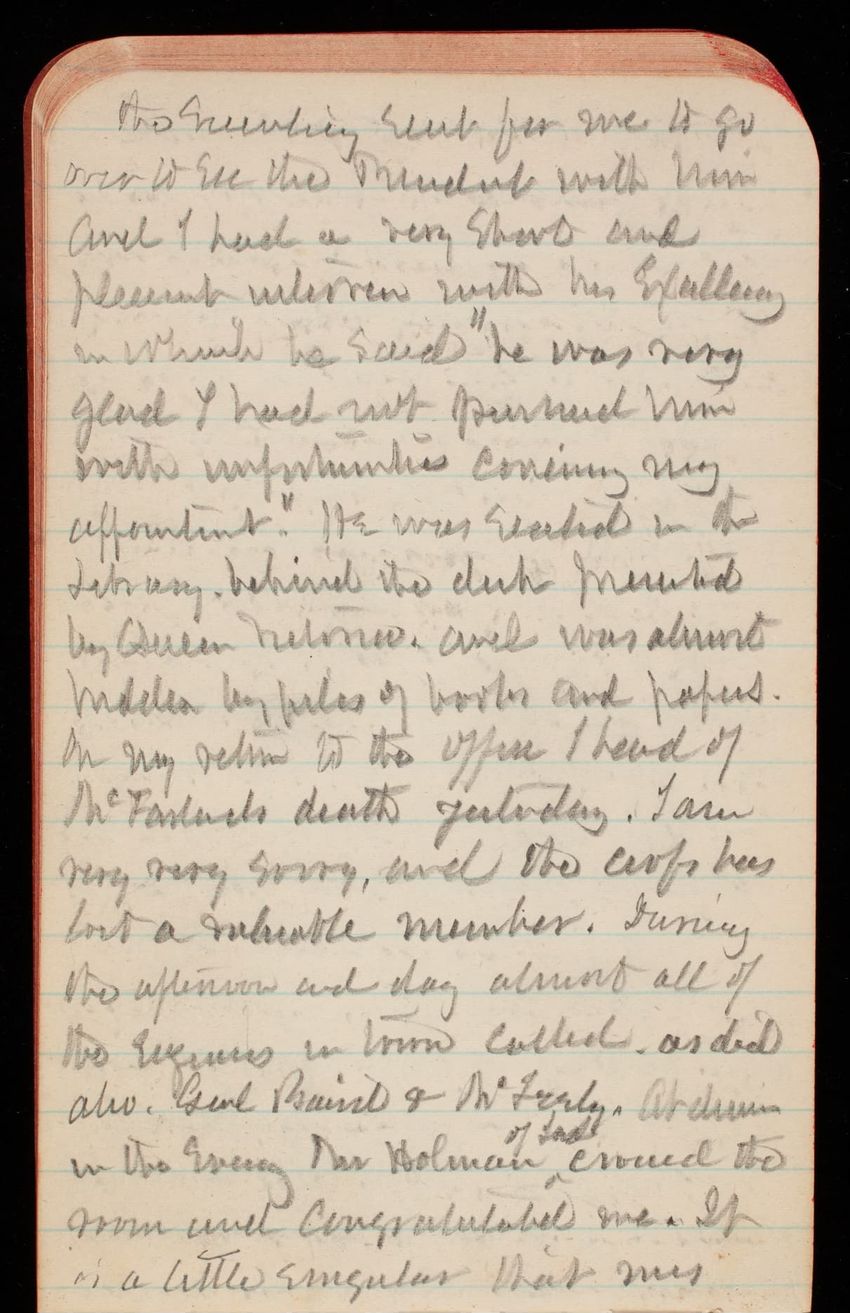 the Secretary sent for me to go
over to see the President with him
and I had a very short and
pleasant interview with his Excellency
in which he said "he was very
glad I had not pursued him
with importunities concerning my
appointment." He was seated in the
Library. behind the desk presented
by Queen Victoria. and was almost
hidden by piles of books and papers.
On my return to the office I heard of
McFarlands death yesterday. I am
very very sorry, and the corps has
lost a valuable member. During
the afternoon and day almost all of
the Engineers in town called. as did
also. Genl Baird & McFeely. At dinner
in the Evening Mr Holman of Ind crossed the
room and congratulated me. It
is a little singular that my